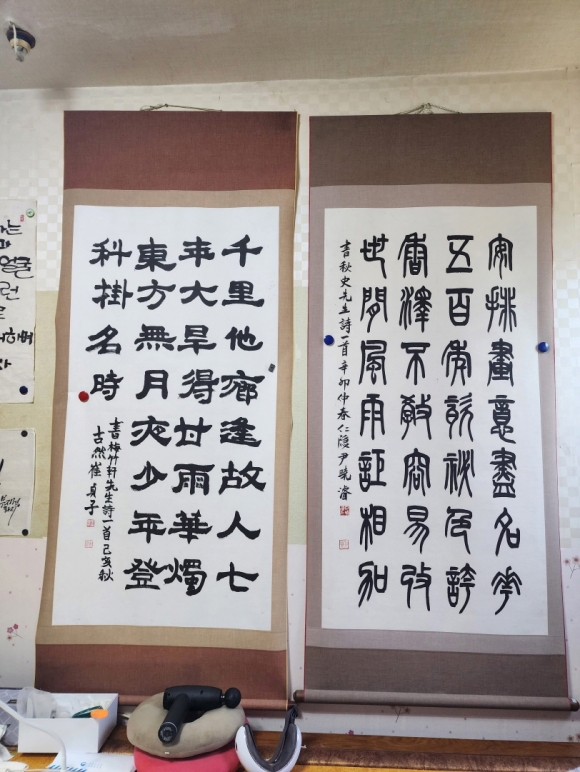 千里他鄕逢故人七
年大旱得甘雨華燭
東方無月夜少年登
科掛名時
書梅竹軒先生詩一首己亥秋
古然崔貞子
安排畫意盡名花
五百年瓷秘色誇
香澤不敎容易改
世間風雨詎相加
書秋史先生詩一首辛卯仲春仁隱尹曉濬
얼굴
런